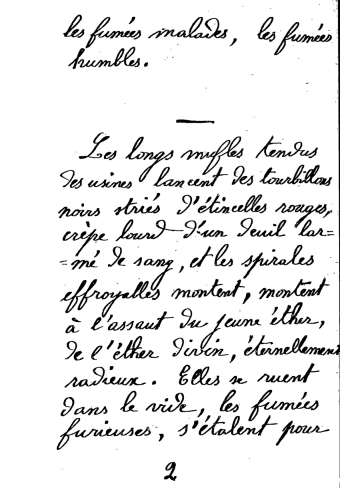 les fumées malades, les fumées
humbles.
Les longs mufles tendus
des usines lancent des tourbillons
noirs striés d'étincelles rouges,
crêpe lourd d'un deuil lar=
=mé de sang, et les spirales
effroyables montent, montent
à l'assaut du jeune éther,
de l'éther divin, éternellement
radieux. Elles se ruent
dans le vide, les fumées
furieuses, s'étalent pour
2